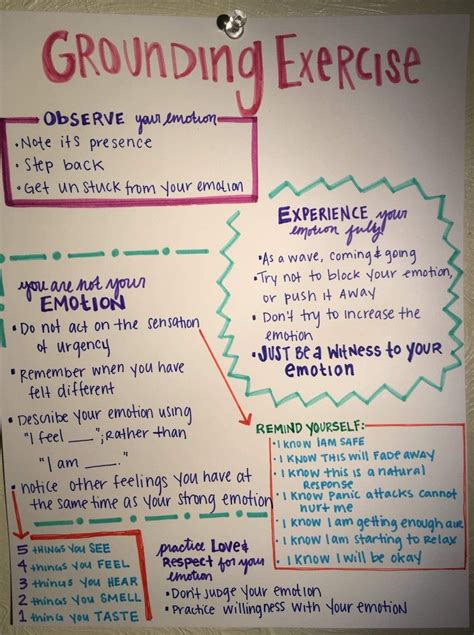 GROUNDING EXERCISE
OBSERVE your emotion
• Note its presence
• Step back
• Get unstuck from your emotion
EXPERIENCE your
emotion fully!
• As a wave, coming & going
• Try not to block your emotion,
or push it away
• Don't try to increase the
emotion
• JUST Be a WITNESS to YOUR
emotion
you are not your
EMOTION
• Do not act on the sensation
of urgency
• Remember when you have
felt different
• Describe your emotion using
"I feel ___"; Rather than
"I am ___."
• notice other feelings you have at
the same time as your strong emotion
REMIND YOURSELF:
• I know I am SAFE
• I KNOW THIS will FADE away
• I know this is a natural
Response
• I know Panic attacks cannot
hurt me
• I know I am getting enough air
• I know I am starting to Relax
• I know I will be okay
5 things you SEE
4 things you FEEL
3 things you HEAR
2 things you SMELL
1 thing you TASTE
practice Love &
Respect for your
emotion
• Don't judge your emotion
• Practice willingness with your emotion